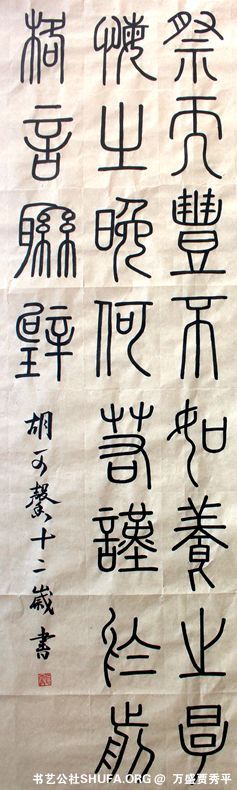 祭而豐不如養之厚
悔之晚何若謹於前
格言聯璧
胡可馨十二歲書
书艺公社SHUFA.ORG @ 万盛贾秀平